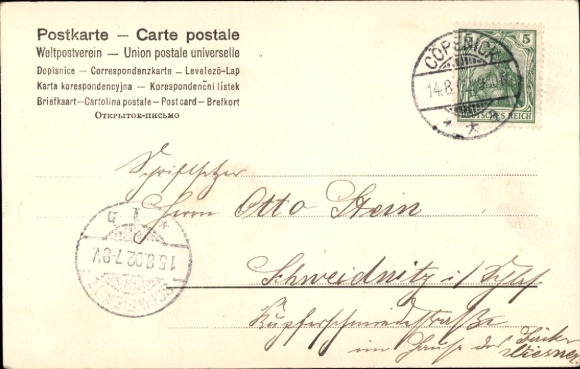 Postkarte — Carte postale
Weltpostverein — Union postale universelle
Dopisnice — Correspondenzkarte — Levelező-Lap
Karta korespondencyjna — Korespondenčni listek
Briefkaart — Cartolina postale — Postcard — Brefkort
Открытое-письмо
5 5
DEUTSCHES REICH
CÖPENICK
14.8.
Schriftsetzer
Herrn Otto Stein
Schweidnitz i/Schles
Kupferschmiedestraße
im Hause des Bäcker
Wiesner
15.8.02.7-8V.